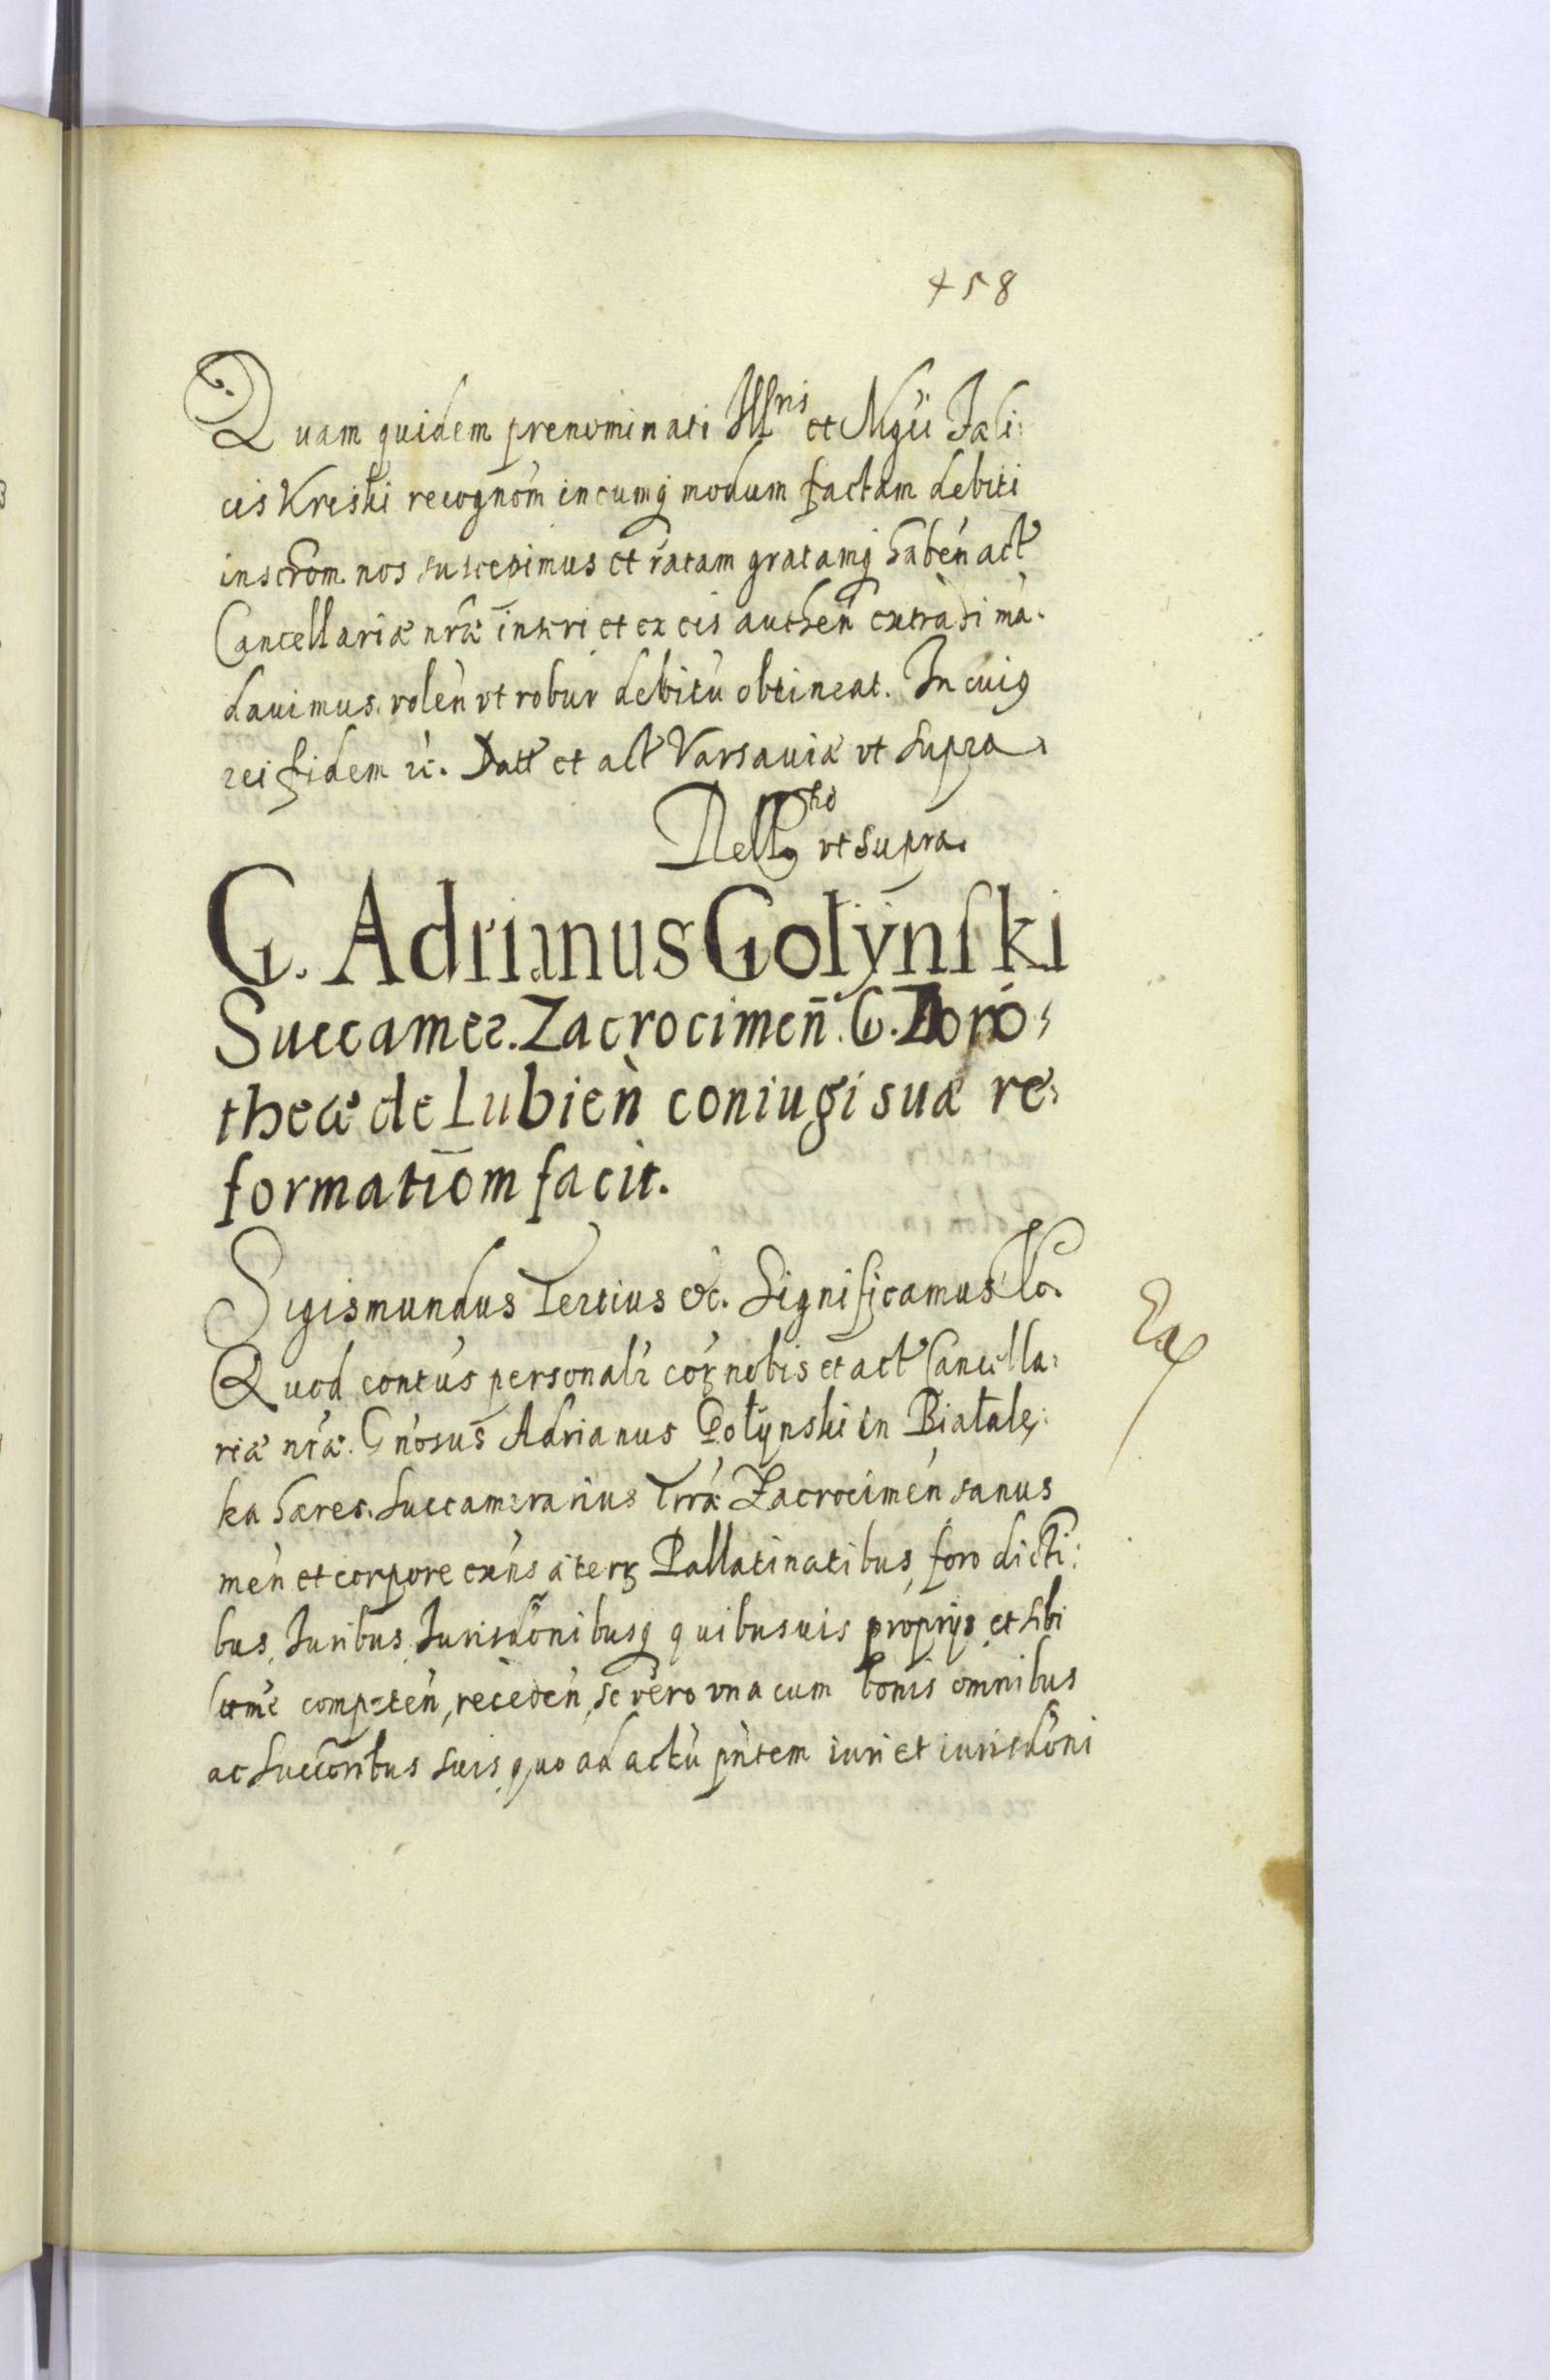 458
Quam quidem prenominati Illris et Mgii Fæli:
cis Kriski recognom in eumq modum factam debiti
inscrom nos suscepimus et ratam gratamq haben act
Cancellariæ nræ inseri et ex eis authen extradi ma-
davimus. volen vt robur debitu obtineat. In cuiq
rei fidem &c. Datt et act Varsauiæ vt supra.
vt supra.
G. Adrianus Gołÿnski
Succamer. Zacrocimen. G. Doro:
theæ de Lubien coniugi suæ re:
formatiom facit.
Sigismundus Tertius &c. Significamus &c.
Quod contus personalr cor nobis et act Cancella:
riæ nræ. Gnosus Adrianus Gołynski in Białałę:
ka hæres. Succamerarius Trræ Zacrocimen sanus
men et corpore exns a terr Pallatinatibus, foro districti:
bus, Iuribus Iurisdonibusq quibusuis proprijs et sibi
competen, receden, se vero vna cum bonis omnibus
ac succoribus suis quo ad actu pntem iuri et iurisdoni